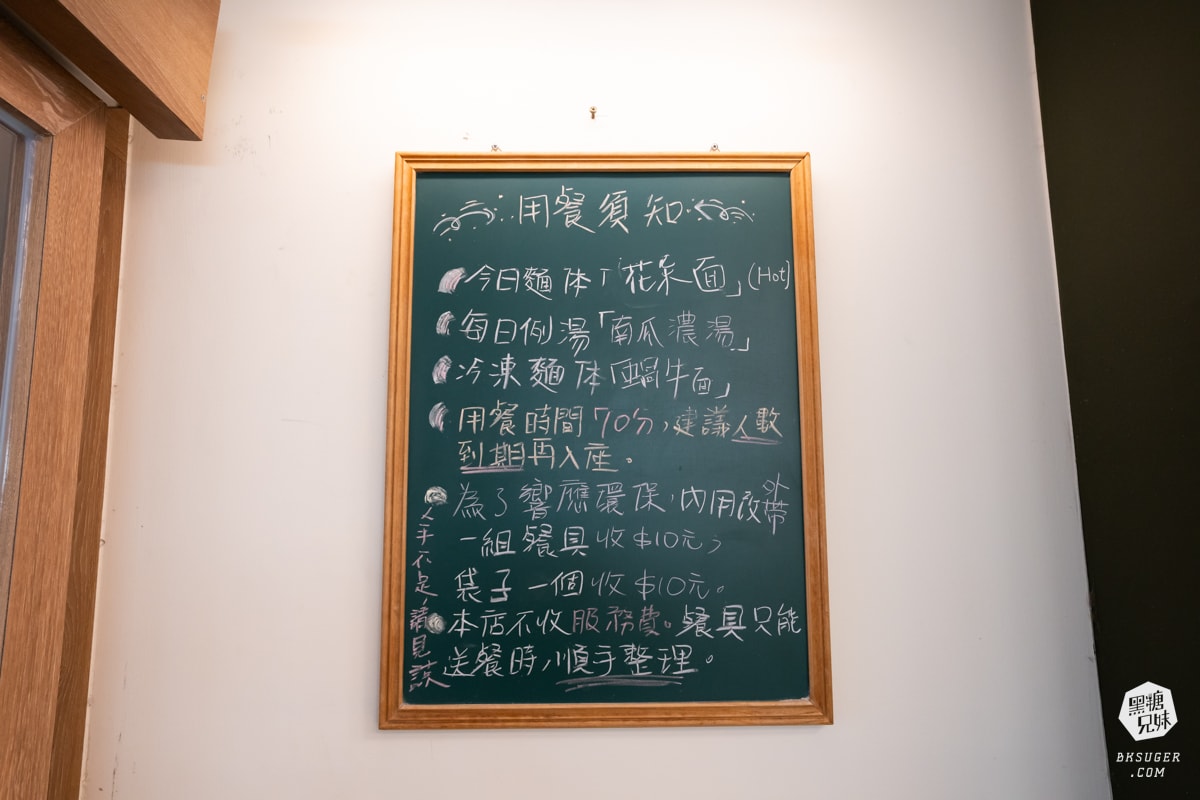 用餐須知
今日麵体「花菜面」(Hot)
每日例湯「南瓜濃湯」
冷凍麵体「蝸牛面」
用餐時間70分,建議人數
到期再入座。
為了響應環保,內用改外帶
一組餐具收$10元,
袋子一個收$10元。
本店不收服務費。餐具只能
送餐時順手整理。
人手不足,請見諒
黑糖
兄妹
BKSUGER
.COM